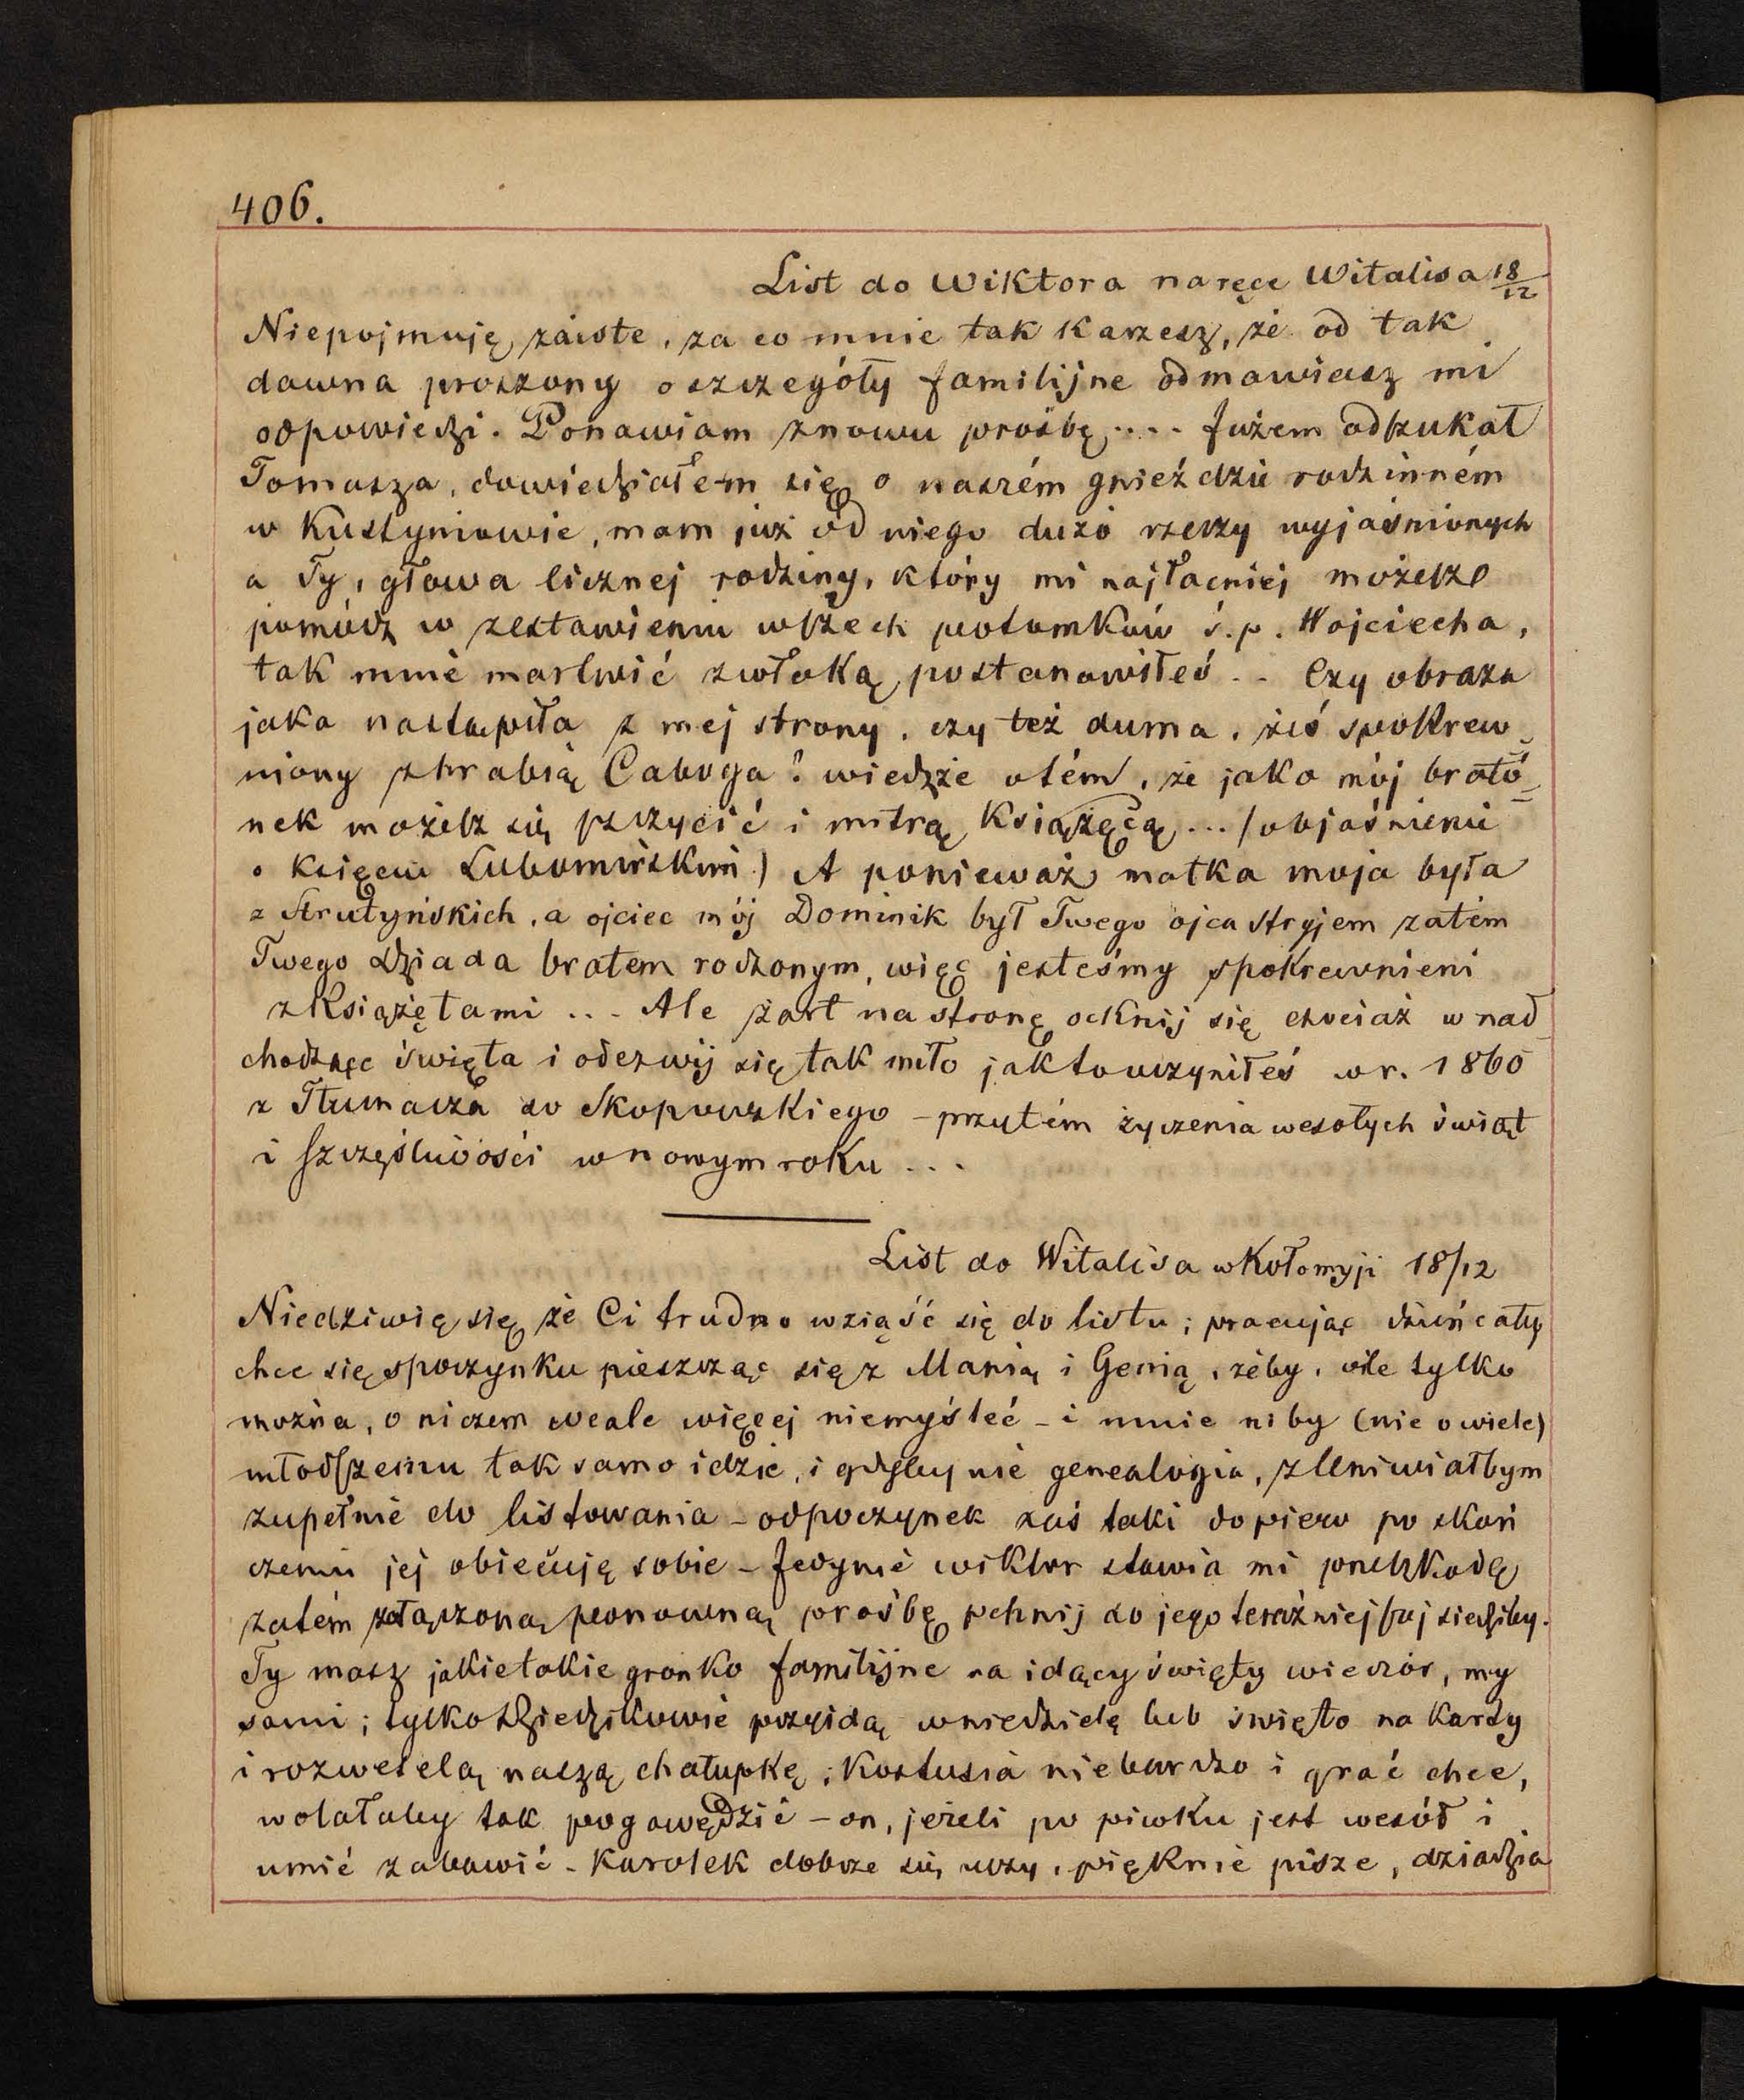 406.
List do Wiktora naręce Witalisa 18/12
Niepojmuję zaiste, za co mnie tak karzesz, że od tak
dawna proszony o szczegóły familijne odmawiasz mi
odpowiedzi. Ponawiam znowu prośbę .... Jużem odszukał
Tomasza, dowiedziałem się o naszém gnieździe rodzinném
w Kustyniowie, mam już od niego dużo rzeczy wyjaśnionych
a Ty, głowa licznej rodziny, który mi najłacniej możesz
pomódz w zestawieniu wszech potomków ś.p. Wojciecha,
tak mnie martwić zwłoką postanowiłeś .. Czy obraza
jaka nastąpiła z mej strony, czy też duma, żeś spokrew-
niony zhrabią Caboga? wiedzże otém, że jako mój brató-
nek możesz się szczycić i mitrą książęcą ... /objaśnienie
o księciu Lubomirskim) A ponieważ matka moja była
z Strutyńskich, a ojciec mój Dominik był Twego ojca stryjem zatém
Twego dziada bratem rodzonym, więc jesteśmy spokrewnieni
zksiążętami ... Ale żart na stronę ocknij się chociaż w nad-
chodzące święta i odezwij się tak miło jaktouczyniłeś w r. 1860
z Tłumacza do Skopowskiego - przytém życzenia wesołych świąt
i szczęśliwości w nowym roku ...
List do Witalisa w Kołomyji 18/12
Niedziwię się że Ci trudno wziąść się do listu; pracując dzień cały
chce się spoczynku pieszcząc się z Manią i Genią, żeby, oile tylko
można, o niczem wcale więcej niemyśleć - i mnie niby (nie o wiele)
młodszemu tak samo idzie, i gdyby nie genealogia, zleniwiałbym
zupełnie do listowania - odpoczynek zaś taki dopiero po skoń
czeniu jej obiecuję sobie - Jedynie wiktor stawia mi przeszkodę
zatém załączoną ponowną prośbę pchnij do jego teraźniejszej siedziby.
Ty masz jakietakie gronko familijne na idący święty wieczór, my
sami; tylko Dziedzikowie przyidą wniedzielę lub święto na karty
i rozweselą naszą chałupkę; Kostusia niebardzo i grać chce,
wolałaby tak pogawędzić - on, jeżeli po piwku jest wesół i
umié zabawić - Karolek dobrze się uczy, pięknie pisze, dziadzia